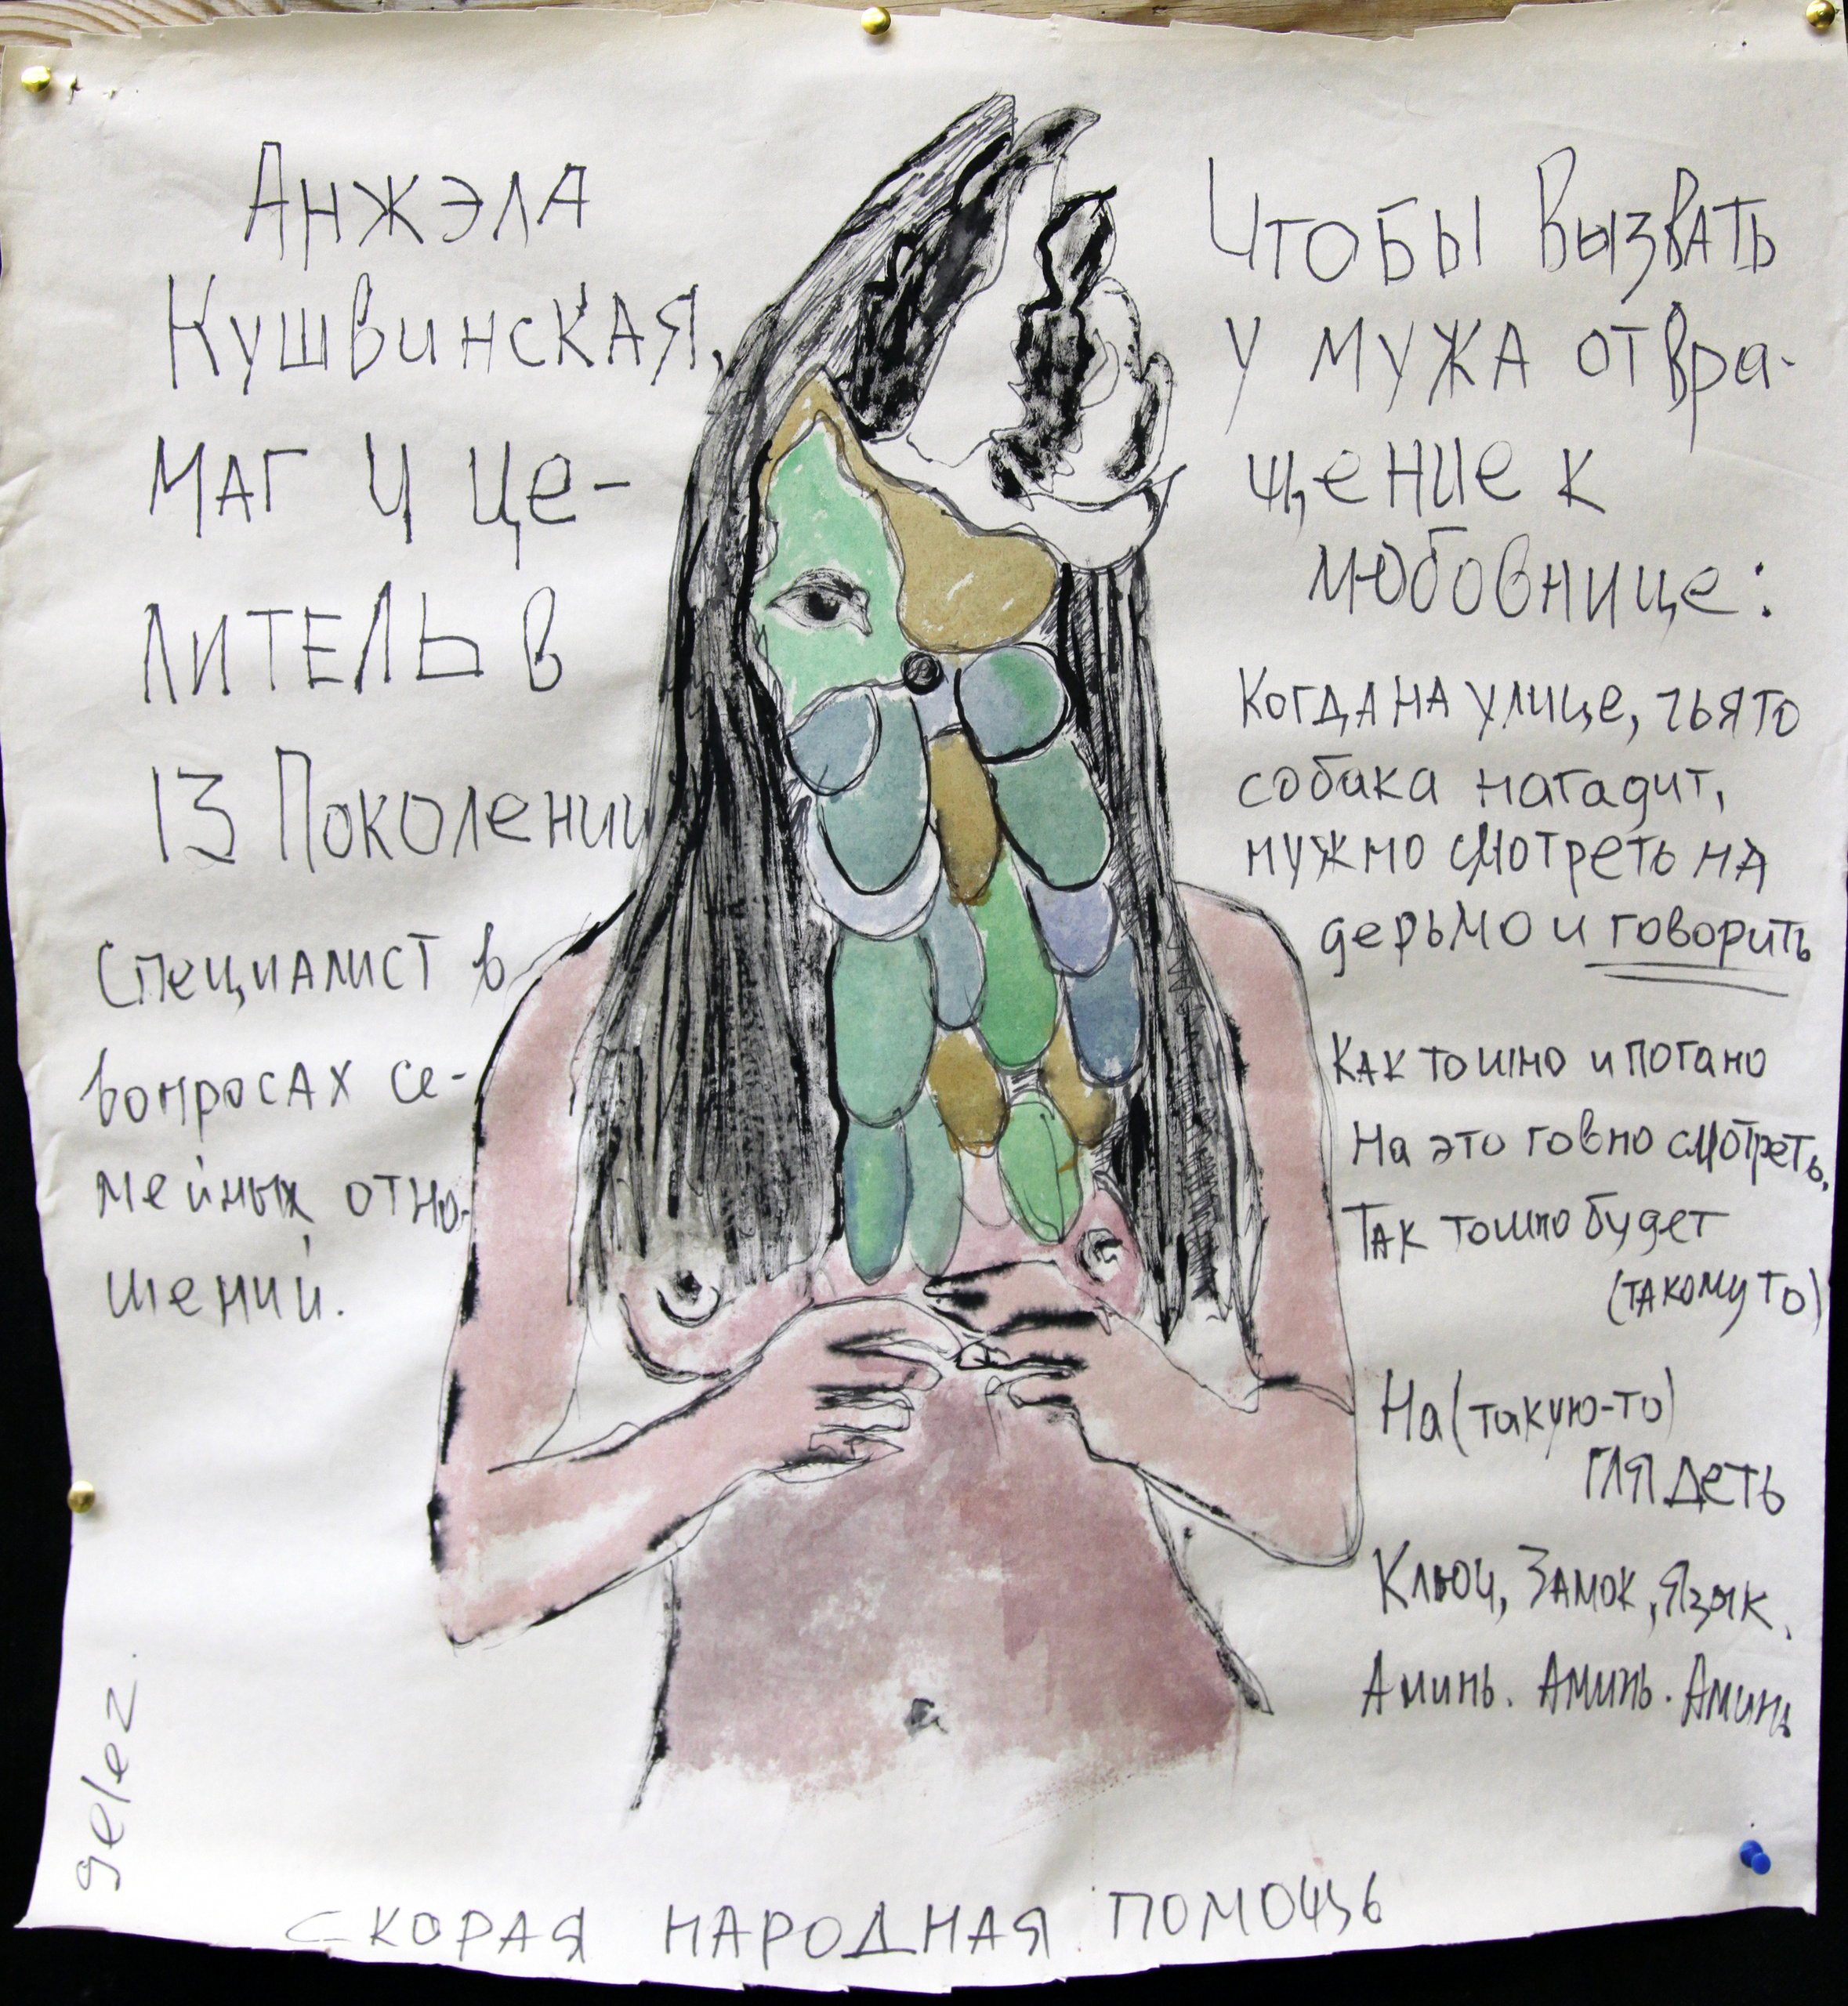 Анжэла
Кушвинская,
маг и це-
литель в
13 Поколении
Специалист в
вопросах се-
мейных отно-
шений.
Чтобы вызвать
у мужа отвра-
щение к
любовнице:
Когда на улице, чья то
собака нагадит,
нужно смотреть на
дерьмо и говорить
Как тошно и погано
На это говно смотреть,
Так тошно будет
(такому то)
На (такую-то)
глядеть
Ключ, Замок, Язык.
Аминь. Аминь. Аминь
gelez.
скорая народная помощь